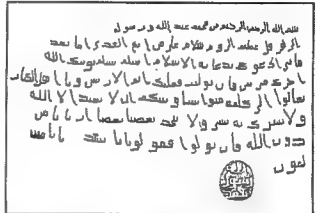 بسم الله الرحمن الرحيم من محمد عبد الله ورسوله
الى هرقل عظيم الروم سلام على من اتبع الهدى اما بعد
فاني ادعوك بدعاية الاسلام اسلم تسلم يوتك الله
اجرك مرتين فان توليت فعليك اثم الاريسيين ويا اهل الكتاب
تعالوا الى كلمة سواء بيننا وبينكم ان لا نعبد الا الله
ولا نشرك به شيئا ولا يتخذ بعضنا بعضا اربابا من
دون الله فان تولوا فقولوا اشهدوا بانا مس
لمون